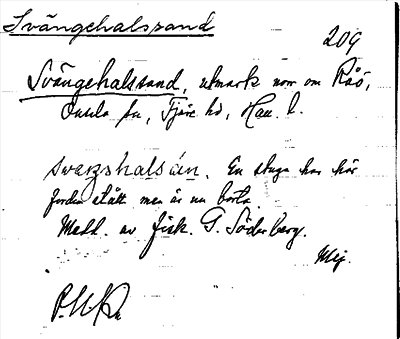 Svängehalssand
209
Svängehalssand, utmark norr om Råö,
Onsala sn, Fjäre hd, Hall. l.
svaŋshalsán. En stuga har här
förden stått men är nu borta.
Medd. av fisk. G. Söderberg.